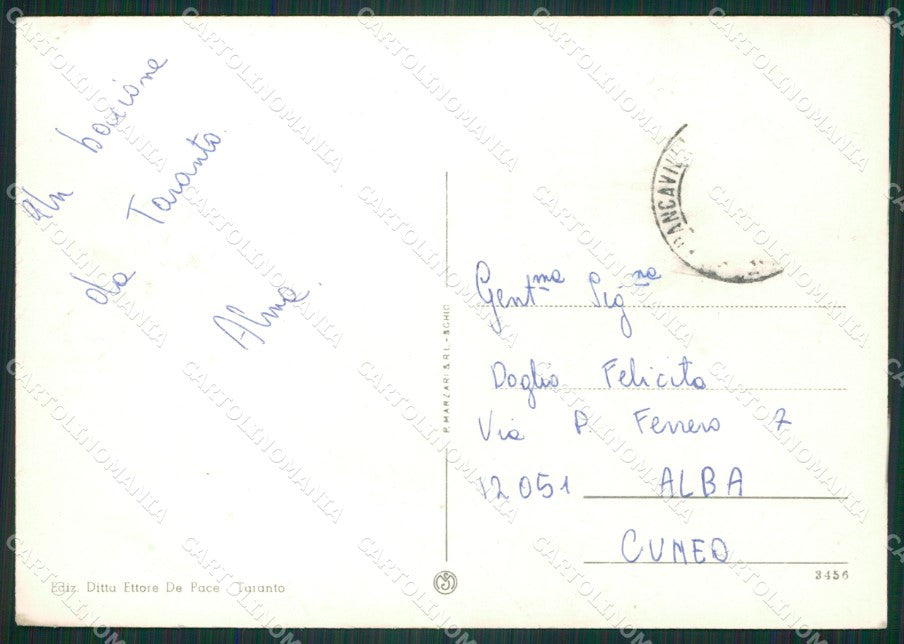 Un bacione
da Taranto.
Alma.
Gent.ma Sig.na
Doglio Felicita
Via P. Ferrero 7
12051 ALBA
CUNEO
P. MARZARI S.R.L. - SCHIO
Ediz. Ditta Ettore De Pace Taranto
3456
CARTOLINOMANIA